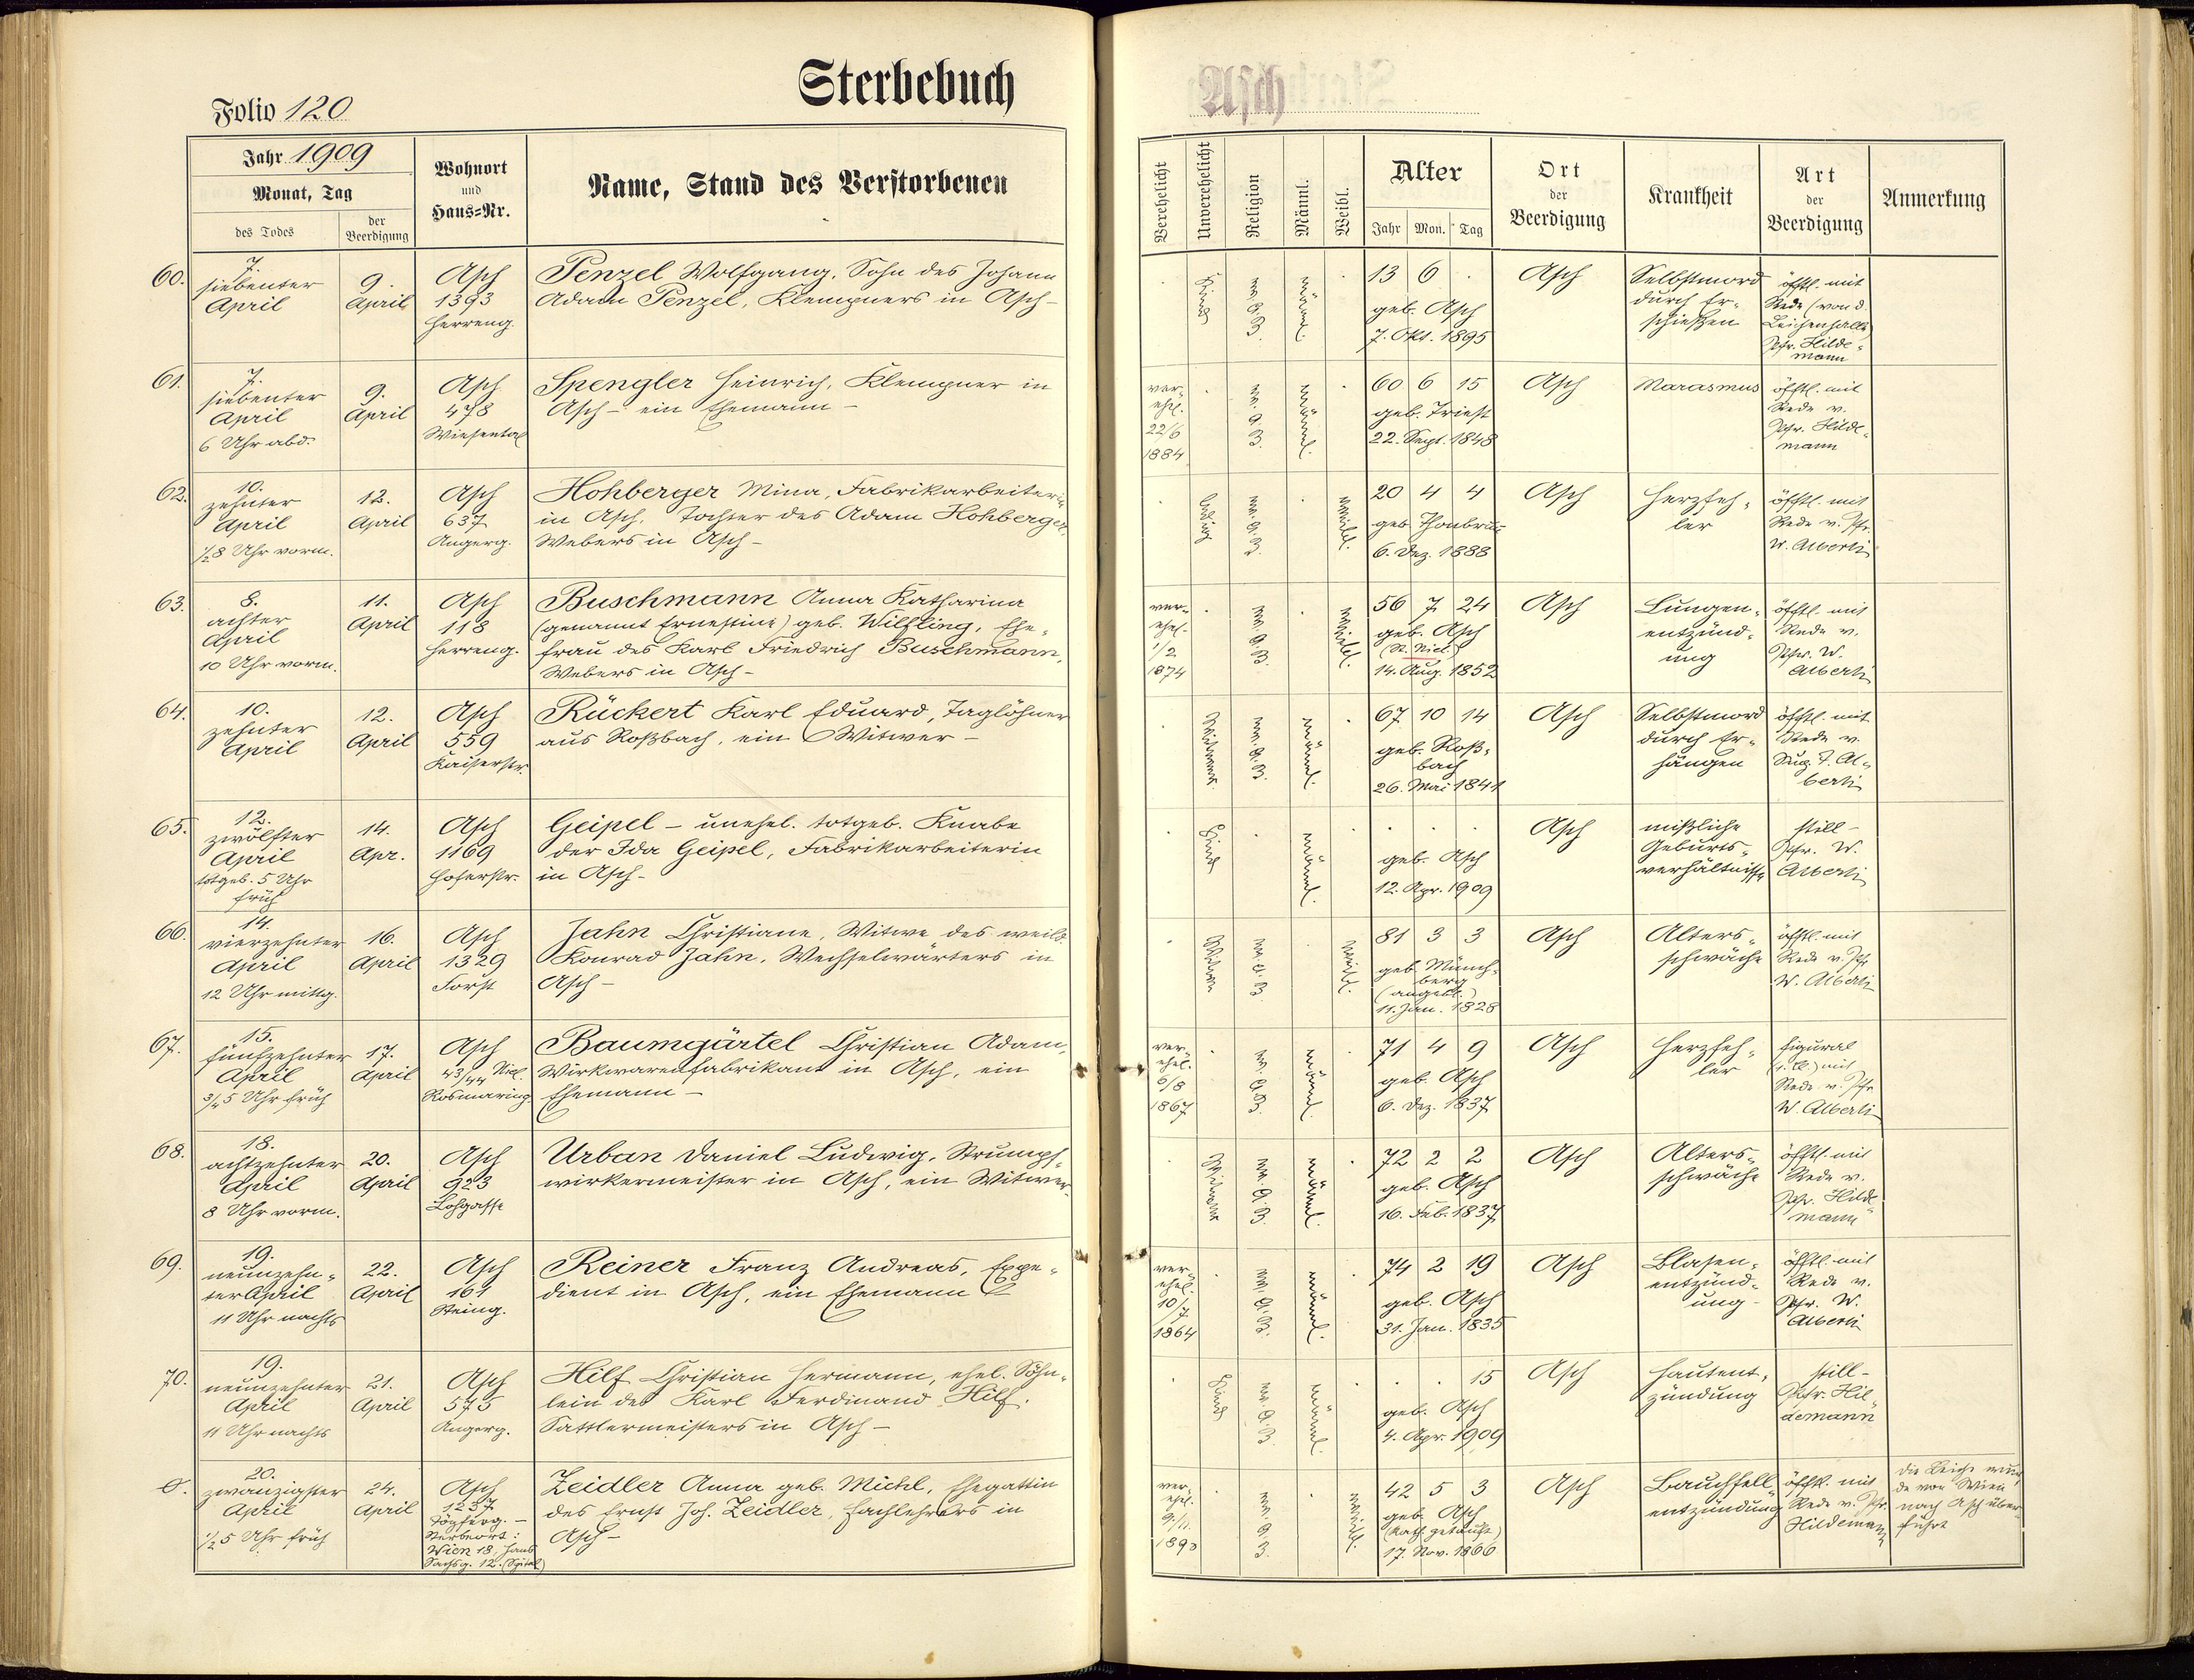 Sterbebuch
Asch
Folio 120
Jahr 1909
Monat, Tag
des Todes
der Beerdigung
Wohnort
und
Haus=Nr.
Name, Stand des Verstorbenen
Verehelicht
Unverehelicht
Religion
Männl.
Weibl.
Alter
Jahr Mon. Tag
Ort
der
Beerdigung
Krankheit
Art
der
Beerdigung
Anmerkung
60.
7.
siebenter
April
9.
April
Asch
1393
Herreng.
Penzel Wolfgang, Sohn des Johann
Adam Penzel, Klempners in Asch –
Kind
männl.
13 6 .
geb. Asch
7. Okt. 1895
Asch
Selbstmord
durch Er-
schießen
öfftl. mit
Rede (von d.
Leichenhalle)
Pfr. Hilde-
mann
61.
7.
siebenter
April
6 Uhr abd.
9.
April
Asch
478
Wiesental
Spengler Heinrich, Klempner in
Asch – ein Ehemann –
ver-
ehel.
22/6
1884
männl.
60 6 15
geb. Triest
22. Sept. 1848
Asch
Marasmus
öfftl. mit
Rede v.
Pfr. Hilde-
mann
62.
10.
zehnter
April
1/2 8 Uhr vorm.
12.
April
Asch
637
Angerg.
Hohberger Mina, Fabrikarbeiterin
in Asch, Tochter des Adam Hohberger,
Webers in Asch –
ledig
weibl.
20 4 4
geb. Thonbrun
6. Dez. 1888
Asch
Herzfeh-
ler
öfftl. mit
Rede v. Pfr.
W. Alberti
63.
8.
achter
April
10 Uhr vorm.
11.
April
Asch
118
Herreng.
Buschmann Anna Katharina
(genannt Ernestine) geb. Wilfling, Ehe-
frau des Karl Friedrich Buschmann,
Webers in Asch –
ver-
ehel.
1/2
1874
weibl.
56 7 24
geb. Asch
(N. Nied.)
14. Aug. 1852
Asch
Lungen-
entzünd-
ung
öfftl. mit
Rede v.
Pfr. W.
Alberti
64.
10.
zehnter
April
12.
April
Asch
559
Kaiserstr.
Rückert Karl Eduard, Taglöhner
aus Roßbach, ein Witwer –
Witwer
männl.
67 10 14
geb. Roß-
bach
26. Mai 1841
Asch
Selbstmord
durch Er-
hängen
öfftl. mit
Rede v.
Sup. F. Al-
berti
65.
12.
zwölfter
April
totgeb. 5 Uhr
früh
14.
Apr.
Asch
1169
Hoferstr.
Geipel – unehel. totgeb. Knabe
der Ida Geipel, Fabrikarbeiterin
in Asch –
Kind
männl.
geb. Asch
12. Apr. 1909
Asch
mißliche
Geburts-
verhältnisse
still –
Pfr. W.
Alberti
66.
14.
vierzehnter
April
12 Uhr mittg.
16.
April
Asch
1329
Forst
Jahn Christiane, Witwe des weild.
Konrad Jahn, Wechselwärters in
Asch –
Witwe
weibl.
81 3 3
geb. Münch-
berg
(angebl.)
11. Jan. 1828
Asch
Alters-
schwäche
öfftl. mit
Rede v. Pfr.
W. Alberti
67.
15.
fünfzehnter
April
3/4 5 Uhr früh
17.
April
Asch
43/44 Nied.
Rosmaring.
Baumgärtel Christian Adam,
Wirkwarenfabrikant in Asch, ein
Ehemann –
ver-
ehel.
6/8
1867
männl.
71 4 9
geb. Asch
6. Dez. 1837
Asch
Herzfeh-
ler
figural
(I. Cl.) mit
Rede v. Pfr.
W. Alberti
68.
18.
achtzehnter
April
8 Uhr vorm.
20.
April
Asch
923
Lohgasse
Urban Daniel Ludwig, Strumpf-
wirkermeister in Asch, ein Witwer.
Witwer
männl.
72 2 2
geb. Asch
16. Feb. 1837
Asch
Alters-
schwäche
öfftl. mit
Rede v.
Pfr. Hilde-
mann
69.
19.
neunzehn-
ter April
11 Uhr nachts
22.
April
Asch
161
Steing.
Reiner Franz Andreas, Expe-
dient in Asch, ein Ehemann
ver-
ehel.
10/7
1864
männl.
74 2 19
geb. Asch
31. Jan. 1835
Asch
Blasen-
entzünd-
ung –
öfftl. mit
Rede v.
Pfr. W.
Alberti
70.
19.
neunzehnter
April
11 Uhr nachts
21.
April
Asch
575
Angerg.
Hilf Christian Hermann, ehel. Söhn-
lein des Karl Ferdinand Hilf,
Sattlermeisters in Asch –
Kind
männl.
. . 15
geb. Asch
4. Apr. 1909
Asch
Hautent-
zündung
still –
Pfr. Hil-
demann
20.
zwanzigster
April
1/2 5 Uhr früh
24.
April
Asch
1237
Töpferg. –
Sterbeort:
Wien 18, Hans
Sachsg. 12. (Spital)
Zeidler Anna geb. Michl, Ehegattin
des Ernst Joh. Zeidler, Fachlehrers in
Asch –
ver-
ehel.
9./11.
1890
weibl.
42 5 3
geb. Asch
(kath. getauft)
17. Nov. 1866
Asch
Bauchfell-
entzündung
öfftl. mit
Rede v. Pfr.
Hildemann
die Leiche wur-
de von Wien
nach Asch über-
führt